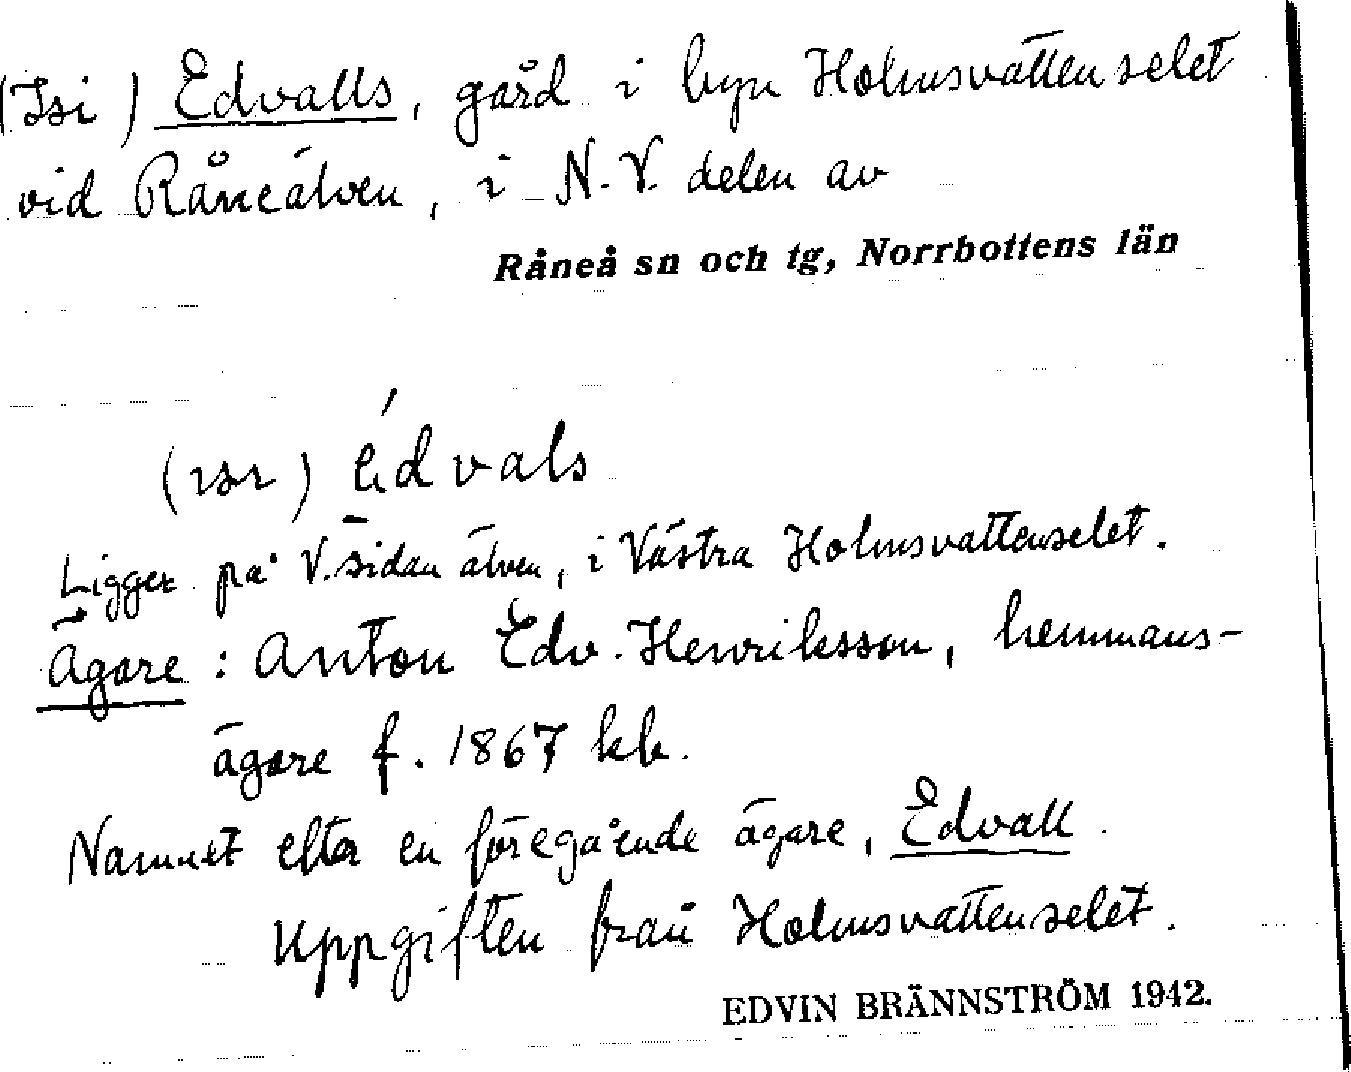 (Isi) Edvalls, gård i byn Holmsvattenselet
vid Råneälven, i N.V. delen av
Råneå sn och tg, Norrbottens län
(ısı) édvals
Ligger på V. sidan älven, i Västra Holmsvattenselet.
Ägare: Anton Edv. Henriksson, hemmans-
ägare f. 1867 kb.
Namnet efter en föregående ägare, Edvall.
Uppgiften från Holmsvattenselet.
EDVIN BRÄNNSTRÖM 1942.